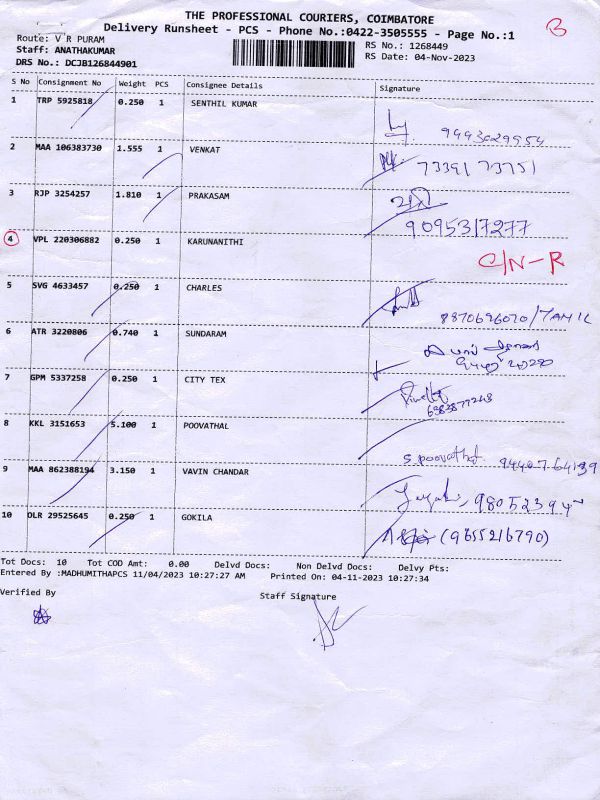 THE PROFESSIONAL COURIERS, COIMBATORE
Delivery Runsheet - PCS - Phone No.:0422-3505555 - Page No.:1
Route: V R PURAM
Staff: ANATHAKUMAR
DRS No.: DCJB126844901
RS No.: 1268449
RS Date: 04-Nov-2023
S No Consignment No Weight PCS Consignee Details Signature
1 TRP 5925818 0.250 1 SENTHIL KUMAR
2 MAA 106383730 1.555 1 VENKAT
7339173751
3 RJP 3254257 1.810 1 PRAKASAM
9095317277
4 VPL 220306882 0.250 1 KARUNANITHI
C/N-R
5 SVG 4633457 0.250 1 CHARLES
8870696070/TAMIL
6 ATR 3220806 0.740 1 SUNDARAM
7 GPM 5337258 0.250 1 CITY TEX
8 KKL 3151653 5.100 1 POOVATHAL
S. Poovathal 9440764139
9 MAA 862388194 3.150 1 VAVIN CHANDAR
10 DLR 29525645 0.250 1 GOKILA
(9655216790)
Tot Docs: 10 Tot COD Amt: 0.00 Delvd Docs: Non Delvd Docs: Delvy Pts:
Entered By :MADHUMITHAPCS 11/04/2023 10:27:27 AM Printed On: 04-11-2023 10:27:34
Verified By
Staff Signature